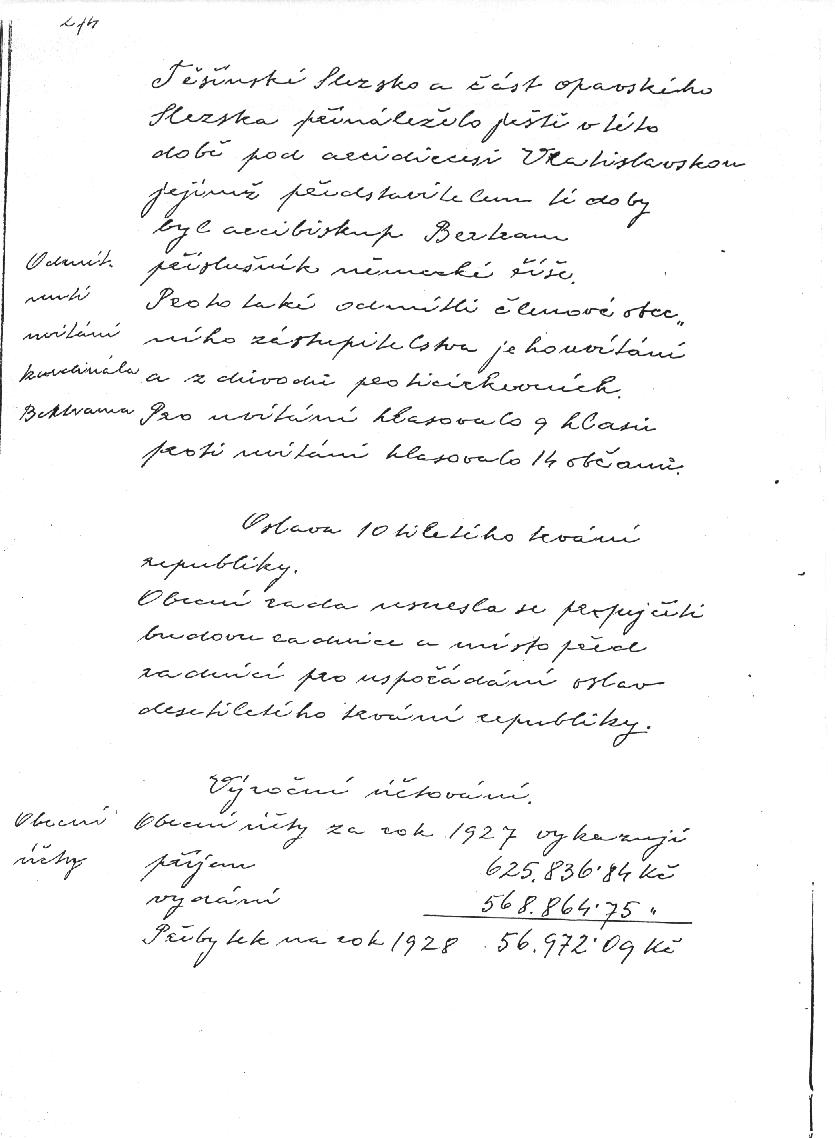 Těšínské Slezsko a část opavského
Slezska přináleželo ještě v této
době pod arcidiecesi Vratislavskou
jejímž představitelem té doby
byl arcibiskup Bertram
Odmít-
příslušník německé říše.
nutí
Proto také odmítli členové obec„
uvítání
ního zastupitelstva jeho uvítání
kardinála
a z důvodů proticírkevních.
Bertrama
Pro uvítání hlasovalo 9 hlasů
proti uvítání hlasovalo 14 občanů.
Oslava 10tiletého trvání
republiky.
Obecní rada usnesla se propujčiti
budovu radnice a místo před
radnicí pro uspořádání oslav
desetiletého trvání republiky.
Výroční účtování.
Obecní
Obecní účty za rok 1927 vykazují
účty
příjem 625.836·84 Kč
vydání 568.864·75 "
Přebytek na rok 1928 56.972·09 Kč